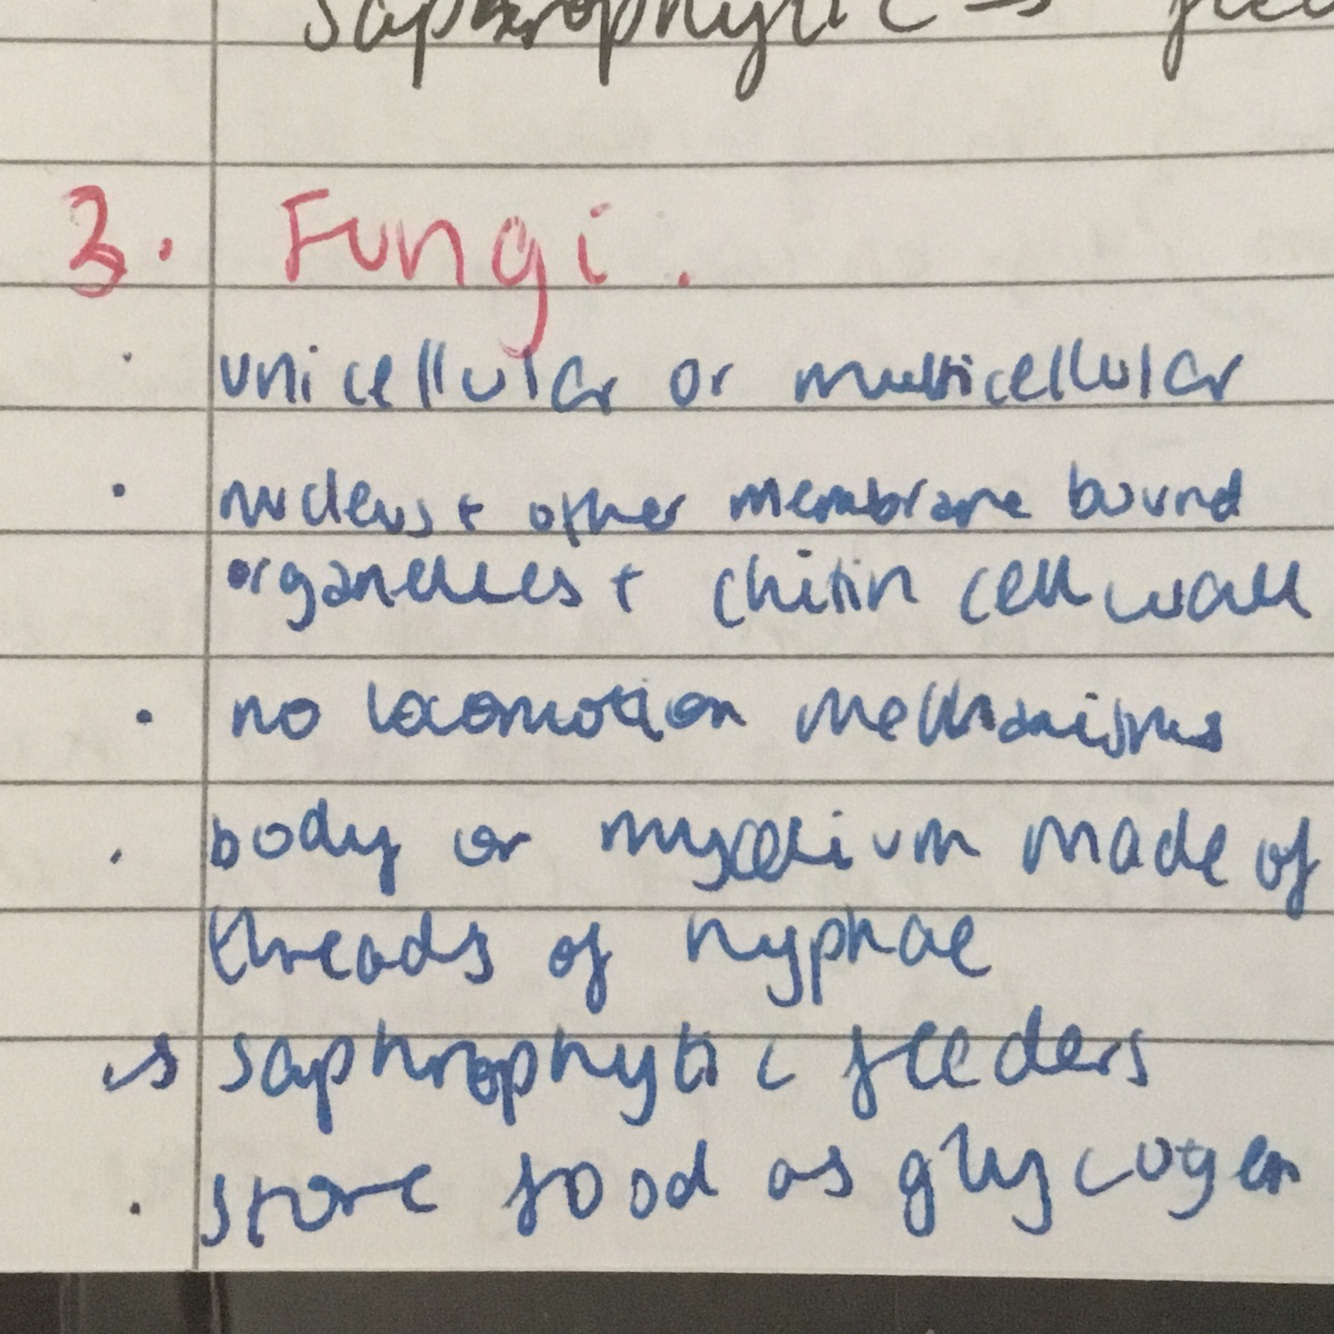 saphrophytic →
3. Fungi.
· unicellular or multicellular
· nucleus + other membrane bound
organelles + chitin cell wall
· no locomotion mechanisms
· body or mycelium made of
threads of hyphae
↳ saphrophytic feeders
· store food as glycogen